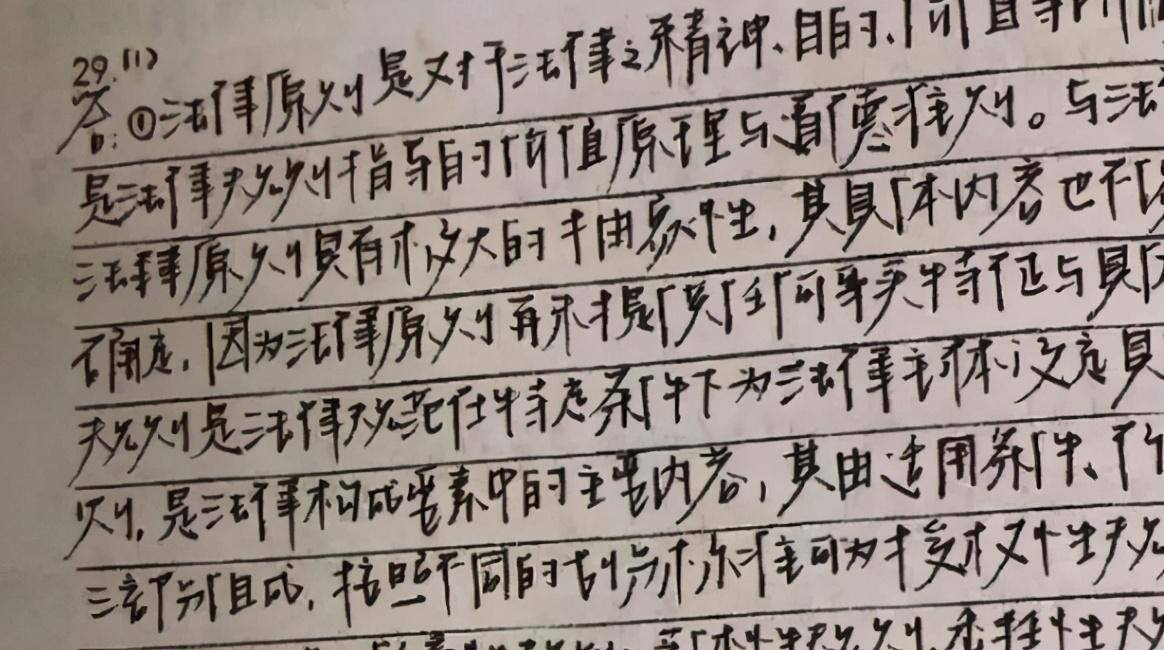 29.(1)
答:①法律原则是对于法律之精神、目的、价值等
是法律规则指导的价值原理与道德准则。与法
法律原则具有极大的抽象性,其具体内容也不
确定,因为法律原则再未提供任何事实特征与具
规则是法律规范在特定条件下为法律主体设定具
则,是法律构成要素中的主要内容,其由适用条件、
三部分组成,按照不同的划分标准可为授权性规